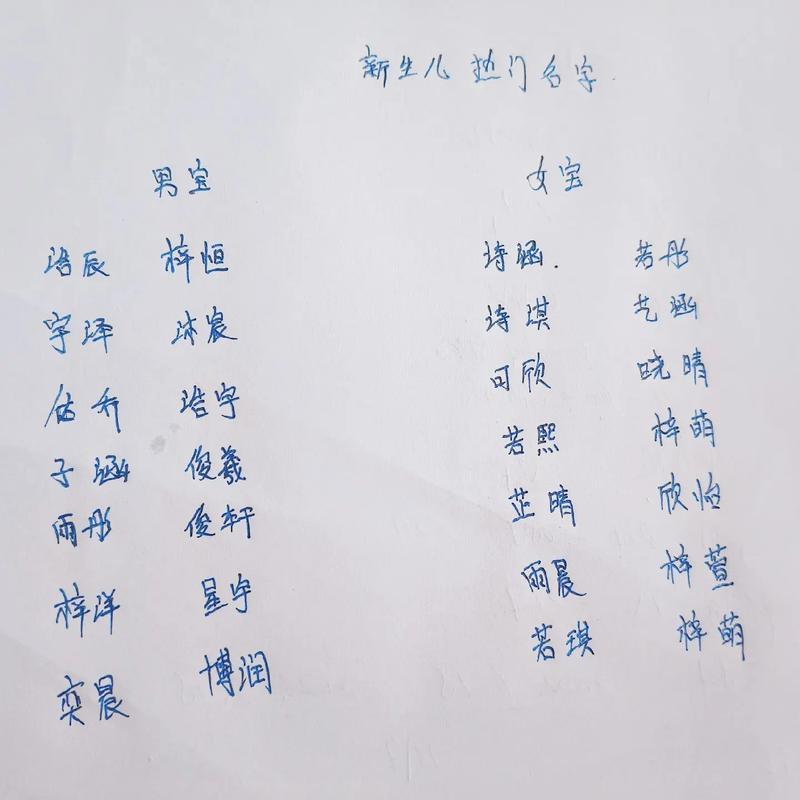 新生儿 热门名字
男宝 女宝
浩辰 梓恒 诗涵 若彤
宇泽 沐宸 诗琪 艺涵
佑乔 浩宇 可欣 晓晴
子涵 俊羲 若熙 梓萌
雨彤 俊轩 芷晴 欣怡
梓洋 星宇 雨晨 梓萱
奕晨 博润 若琪 梓萌